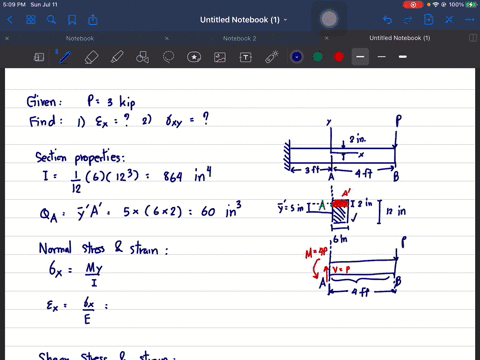 5:09 PM Sun Jul 11
100%
Untitled Notebook (1)
Notebook
Notebook 2
Untitled Notebook (1)
Given: P = 3 kip
Find: 1) εx = ? 2) γxy = ?
Section properties:
I = 1/12 (6)(12³) = 864 in⁴
QA = ȳ'A' = 5 × (6 × 2) = 60 in³
Normal stress & strain:
σx = My/I
εx = σx/E =
Shear stress & strain:
y P
2 in.
x
3 ft 4 ft
A B
A'
ȳ' = 5 in A 2 in
12 in
6 in
M = 4P P
V = P
A B
4 ft